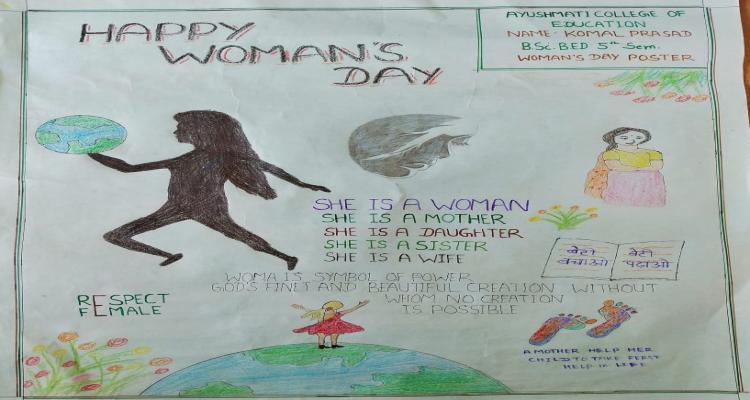 HAPPY
WOMAN'S
DAY
AYUSHMATI COLLEGE OF
EDUCATION
NAME- KOMAL PRASAD
B.Sc. BED 5th Sem.
WOMAN'S DAY POSTER
SHE IS A WOMAN
SHE IS A MOTHER
SHE IS A DAUGHTER
SHE IS A SISTER
SHE IS A WIFE
बेटी
बचाओ
बेटी
पढ़ाओ
WOMA IS SYMBOL OF POWER
GOD'S FINET AND BEAUTIFUL CREATION WITHOUT
WHOM NO CREATION
IS POSSIBLE
RESPECT
FEMALE
A MOTHER HELP HER
CHILD TO TAKE FIRST
HELP IN LIFE